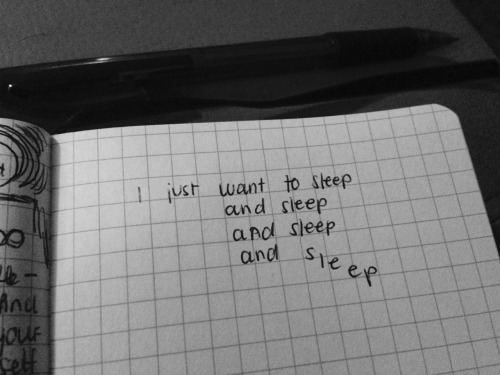 I just want to sleep
and sleep
and sleep
and sleep
And
your
self